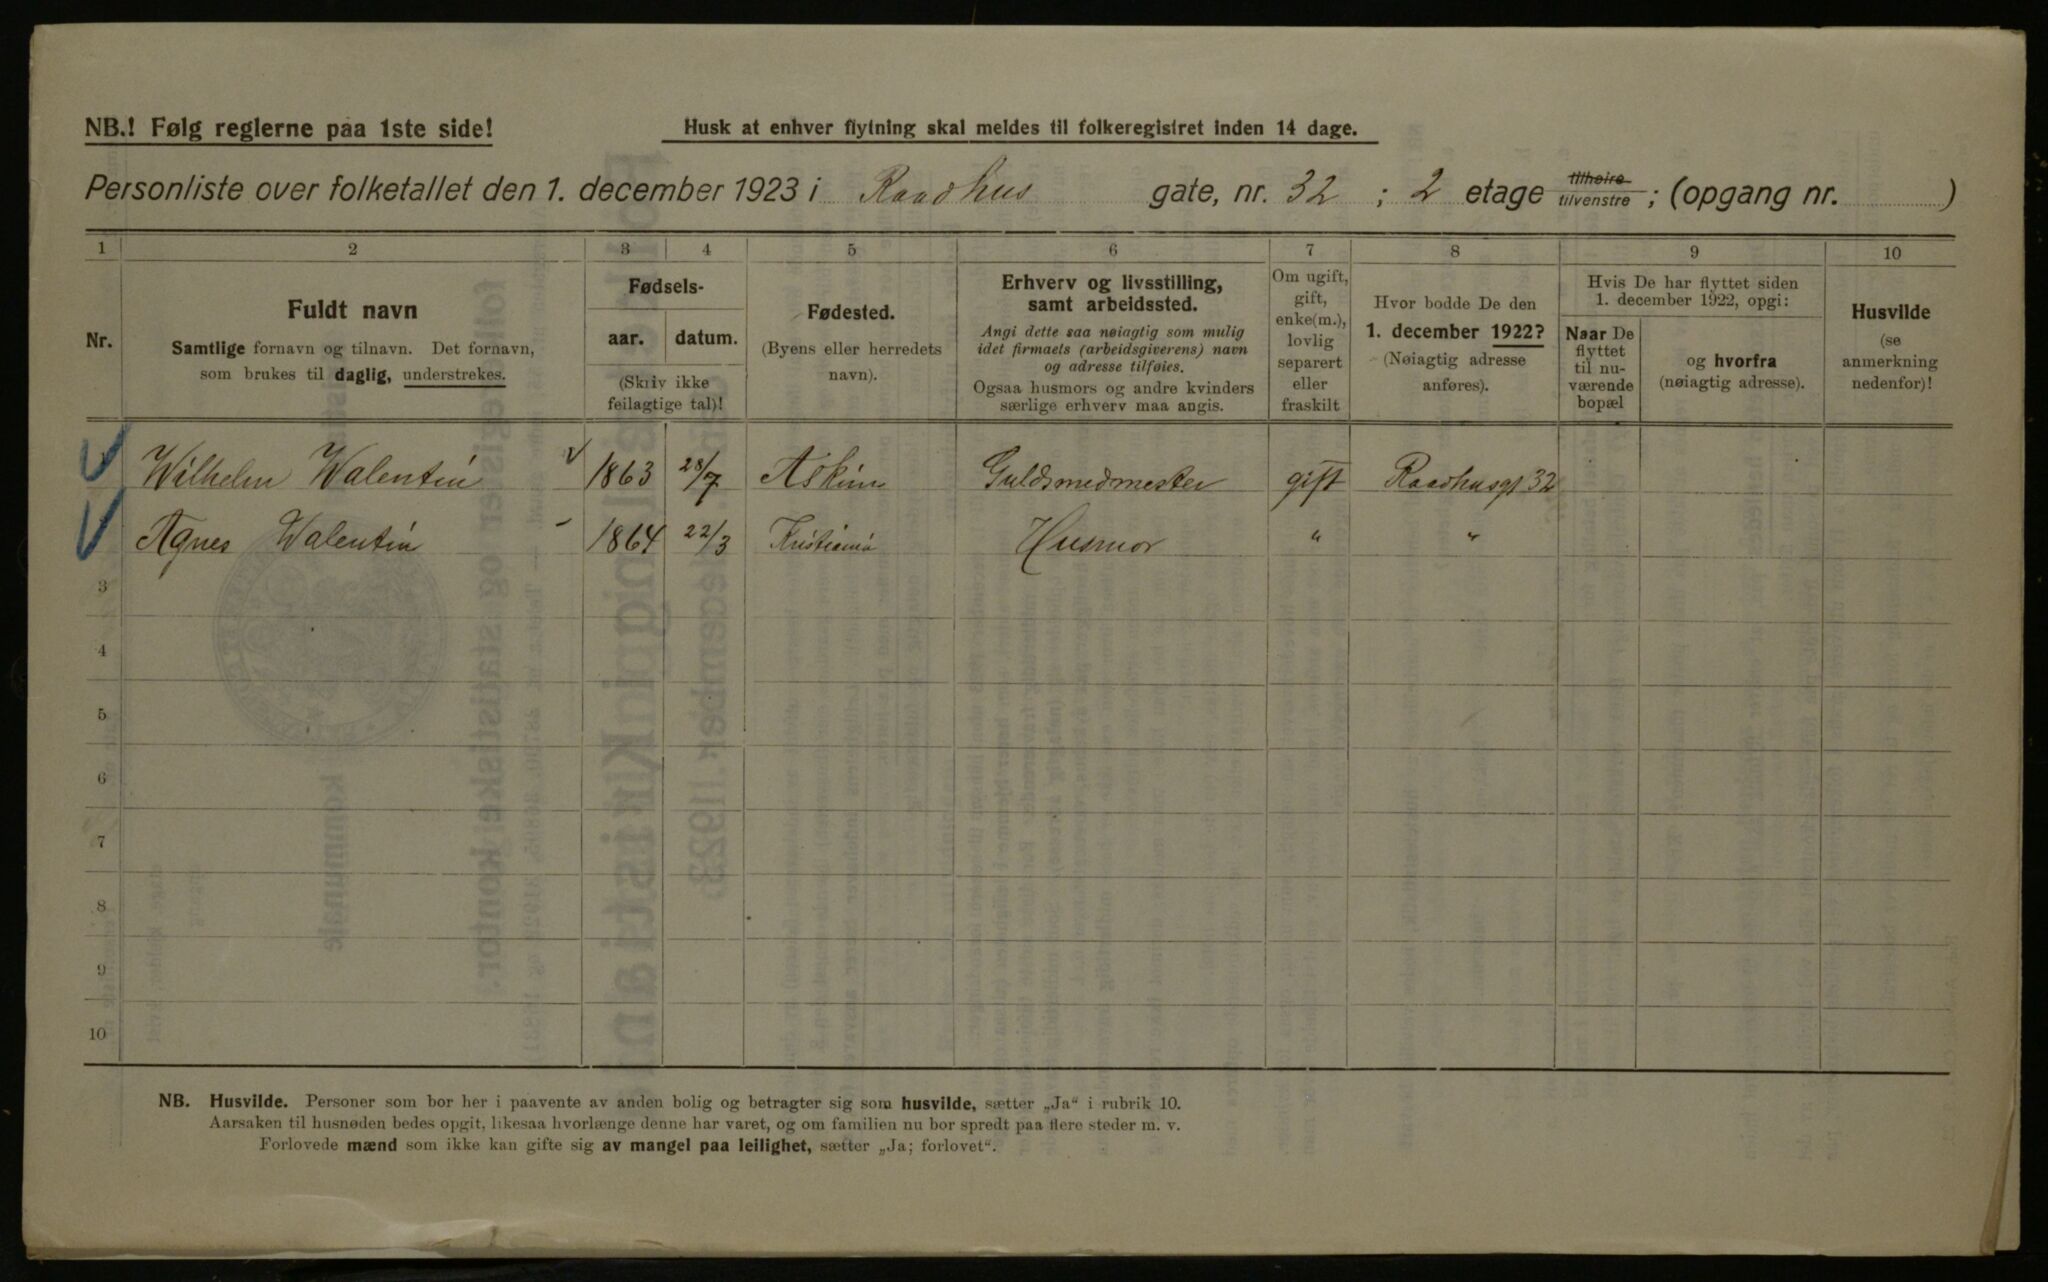 NB.! Følg reglerne paa 1ste side!
Husk at enhver flytning skal meldes til folkeregistret inden 14 dage.
Personliste over folketallet den 1. december 1923 i Raadhus gate, nr. 32 ; 2 etage tilhøire tilvenstre ; (opgang nr. )
1 2 3 4 5 6 7 8 9 10
Nr.
Fuldt navn
Samtlige fornavn og tilnavn. Det fornavn,
som brukes til daglig, understrekes.
Fødsels-
aar. datum.
(Skriv ikke
feilagtige tal)!
Fødested.
(Byens eller herredets
navn).
Erhverv og livsstilling,
samt arbeidssted.
Angi dette saa nøiagtig som mulig
idet firmaets (arbeidsgiverens) navn
og adresse tilføies.
Ogsaa husmors og andre kvinders
særlige erhverv maa angis.
Om ugift,
gift,
enke(m.),
lovlig
separert
eller
fraskilt
Hvor bodde De den
1. december 1922?
(Nøiagtig adresse
anføres).
Hvis De har flyttet siden
1. december 1922, opgi:
Naar De
flyttet
til nu-
værende
bopæl
og hvorfra
(nøiagtig adresse).
Husvilde
(se
anmerkning
nedenfor)!
Wilhelm Walentin 1863 28/7 Askim Guldsmedmester gift Raadhusgt 32
Agnes Walentin 1864 22/3 Kristiania Husmor " "
3
4
5
6
7
8
9
10
NB. Husvilde. Personer som bor her i paavente av anden bolig og betragter sig som husvilde, sætter „Ja" i rubrik 10.
Aarsaken til husnøden bedes opgit, likesaa hvorlænge denne har varet, og om familien nu bor spredt paa flere steder m. v.
Forlovede mænd som ikke kan gifte sig av mangel paa leilighet, sætter „Ja; forlovet".